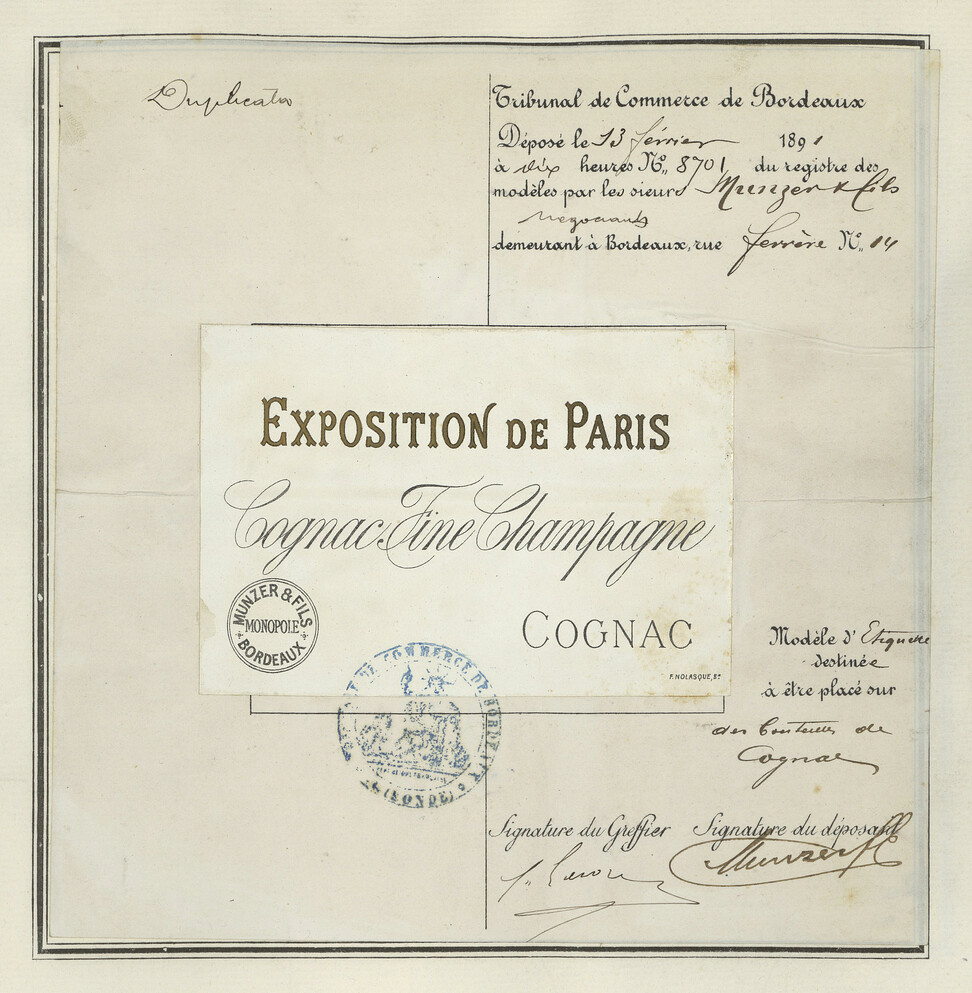 Duplicata
Tribunal de Commerce de Bordeaux
Déposé le 13 février 1891
à dix heures Nº 8701 du registre des
modèles par les sieurs Munzer & fils
negociants
demeurant à Bordeaux, rue ferrère Nº 14
EXPOSITION DE PARIS
Cognac Fine Champagne
MUNZER & FILS
MONOPOLE
BORDEAUX
COGNAC
F. NOLASQUE, Bx
DE COMMERCE DE BORDEAUX
(GIRONDE)
Modèle d'Etiquette
destinée
à être placé sur
des Bouteilles de
Cognac
Signature du Greffier Signature du déposant
Munzer